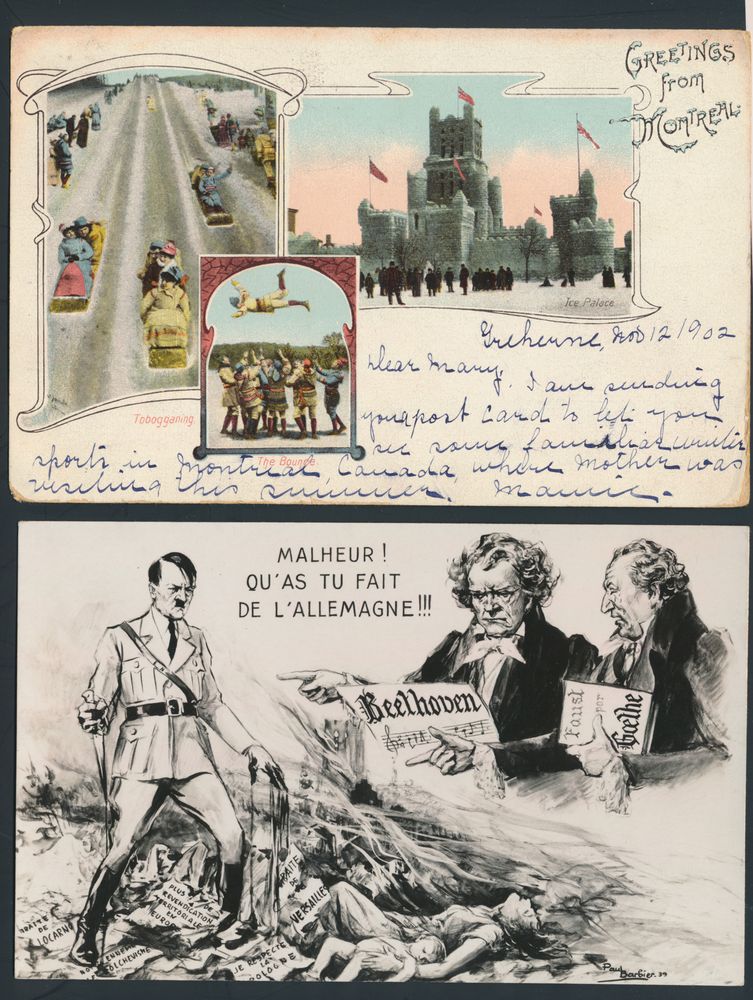 GREETINGS
from
MONTREAL.
Ice Palace
Tobogganing
The Bounce
Treherne, Nov 12/1902
Dear Mary, I am sending
you a post card to let you
see some familiar winter
sports in Montreal, Canada where Mother was
visiting this summer. Mamie.
MALHEUR!
QU'AS TU FAIT
DE L'ALLEMAGNE!!!
Beethoven
Faust
par
Gœthe
TRAITÉ
DE
LOCARN
PLUS DE
REVENDICATION
TERRITORIALE
EN
EUROPE
TRAITE
DE
VERSAILLE
JE RESPECTE
LA
POLOGNE
Paul
Barbier. 39